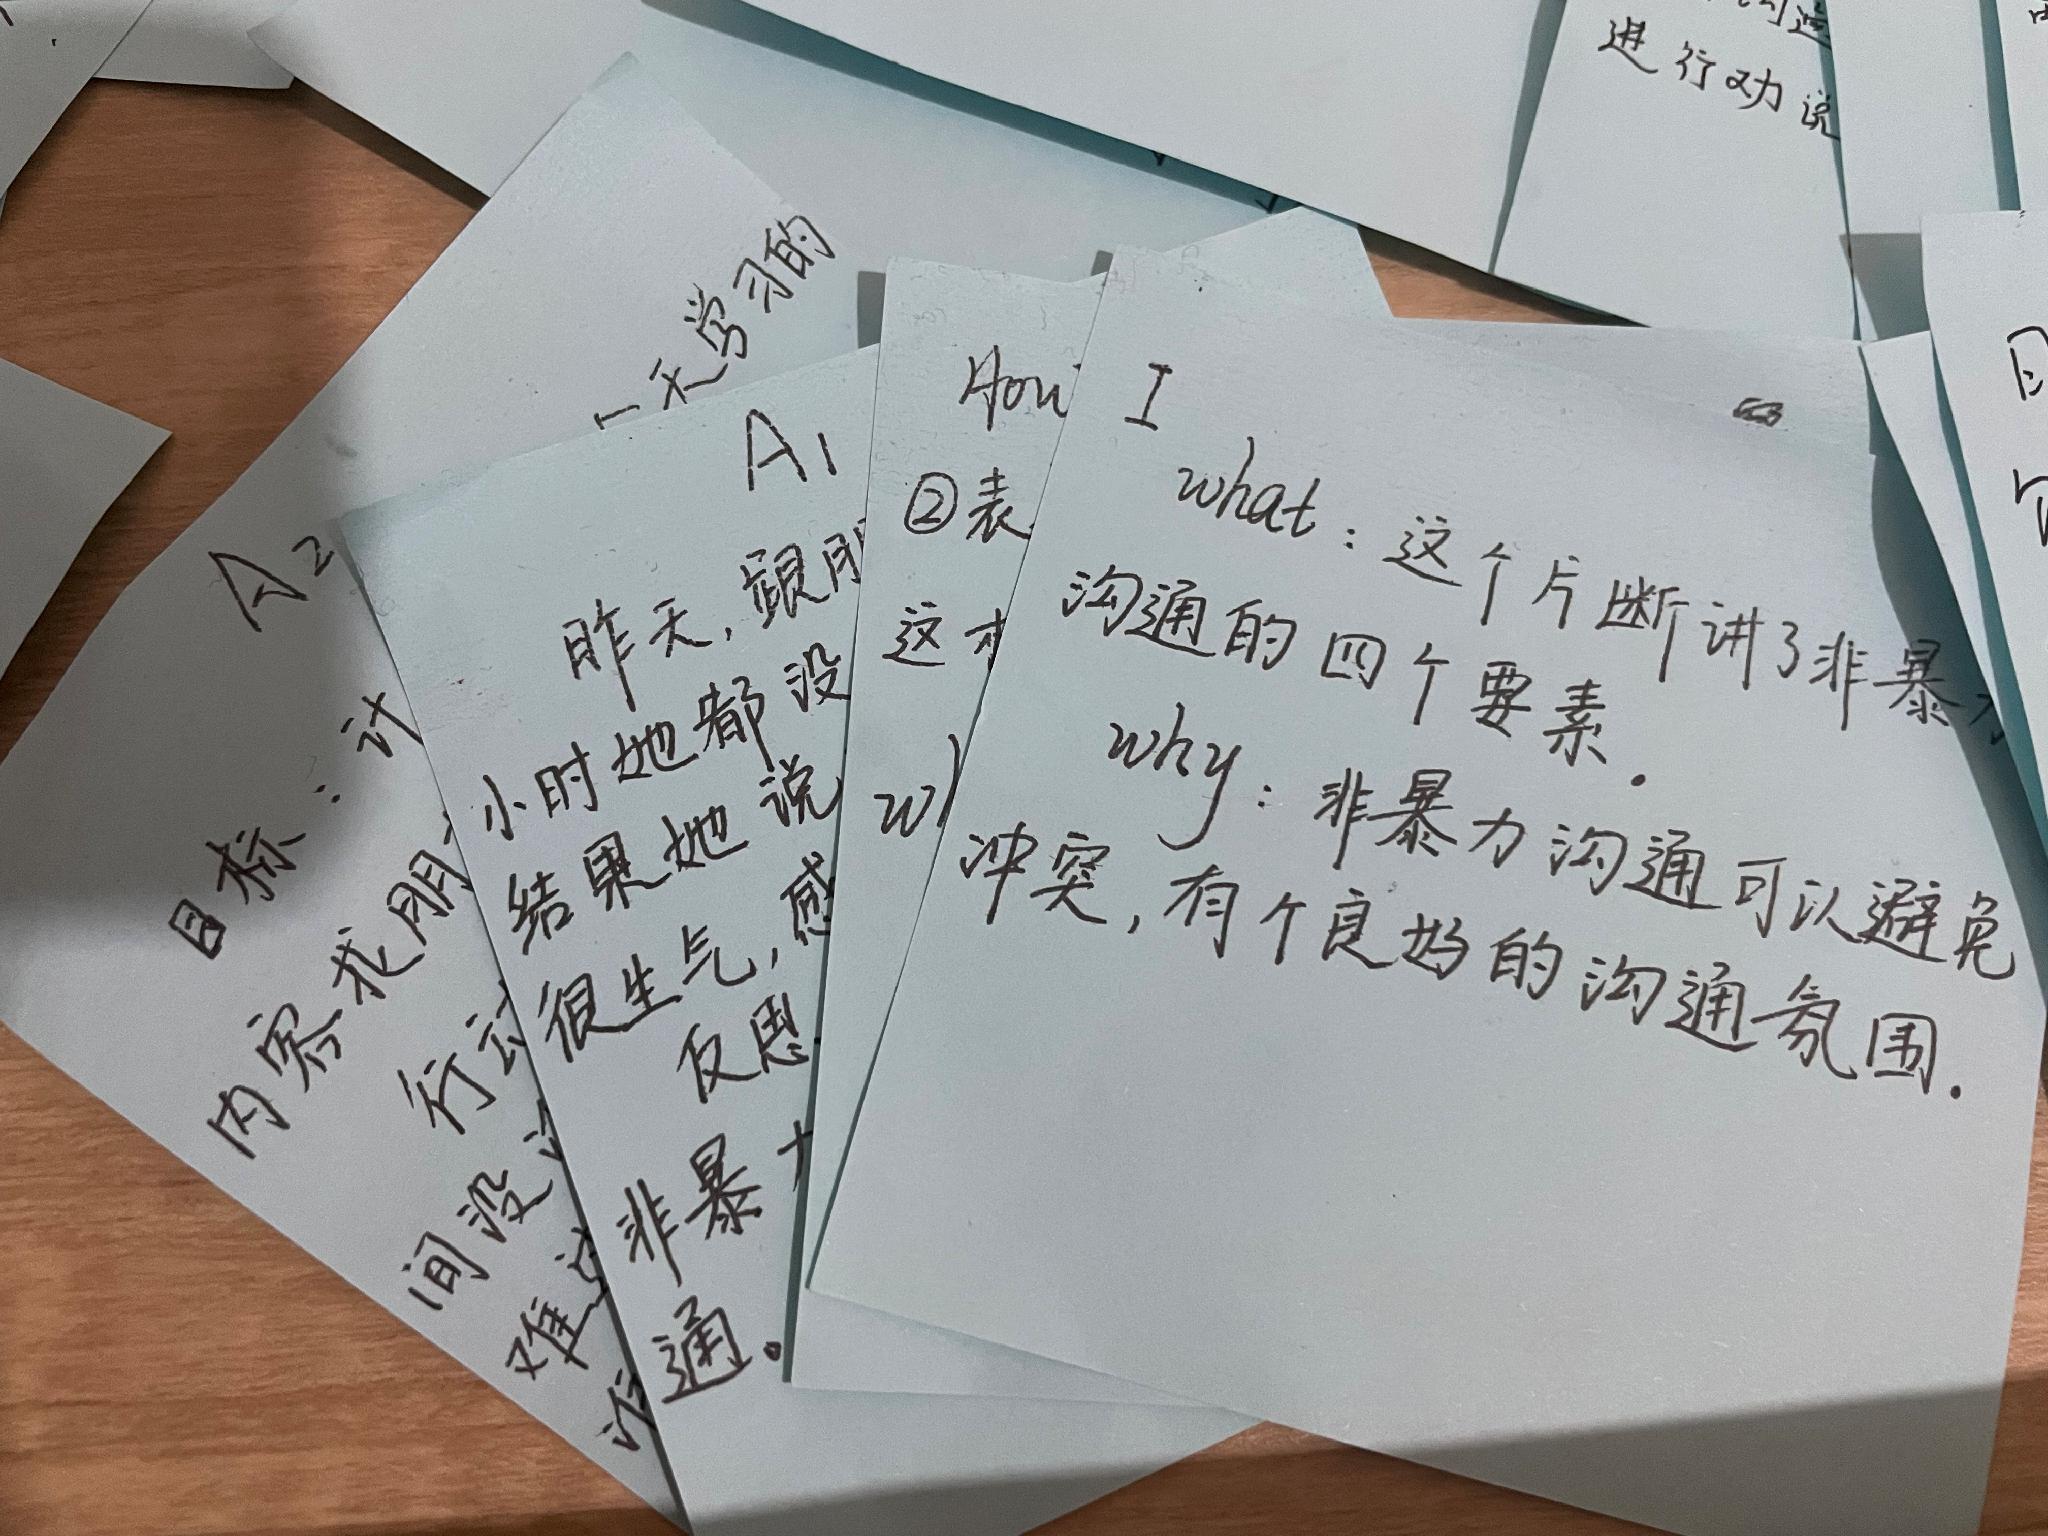 进行劝说
一天学习的
A2
目标：计
内容：我明
行动
间没
难
A1
昨天，跟朋
小时她都没
结果她说
很生气，感
反思
非暴力
通。
How
②表
这本
I
what：这个片断讲了非暴力
沟通的四个要素.
why：非暴力沟通可以避免
冲突，有个良好的沟通氛围.